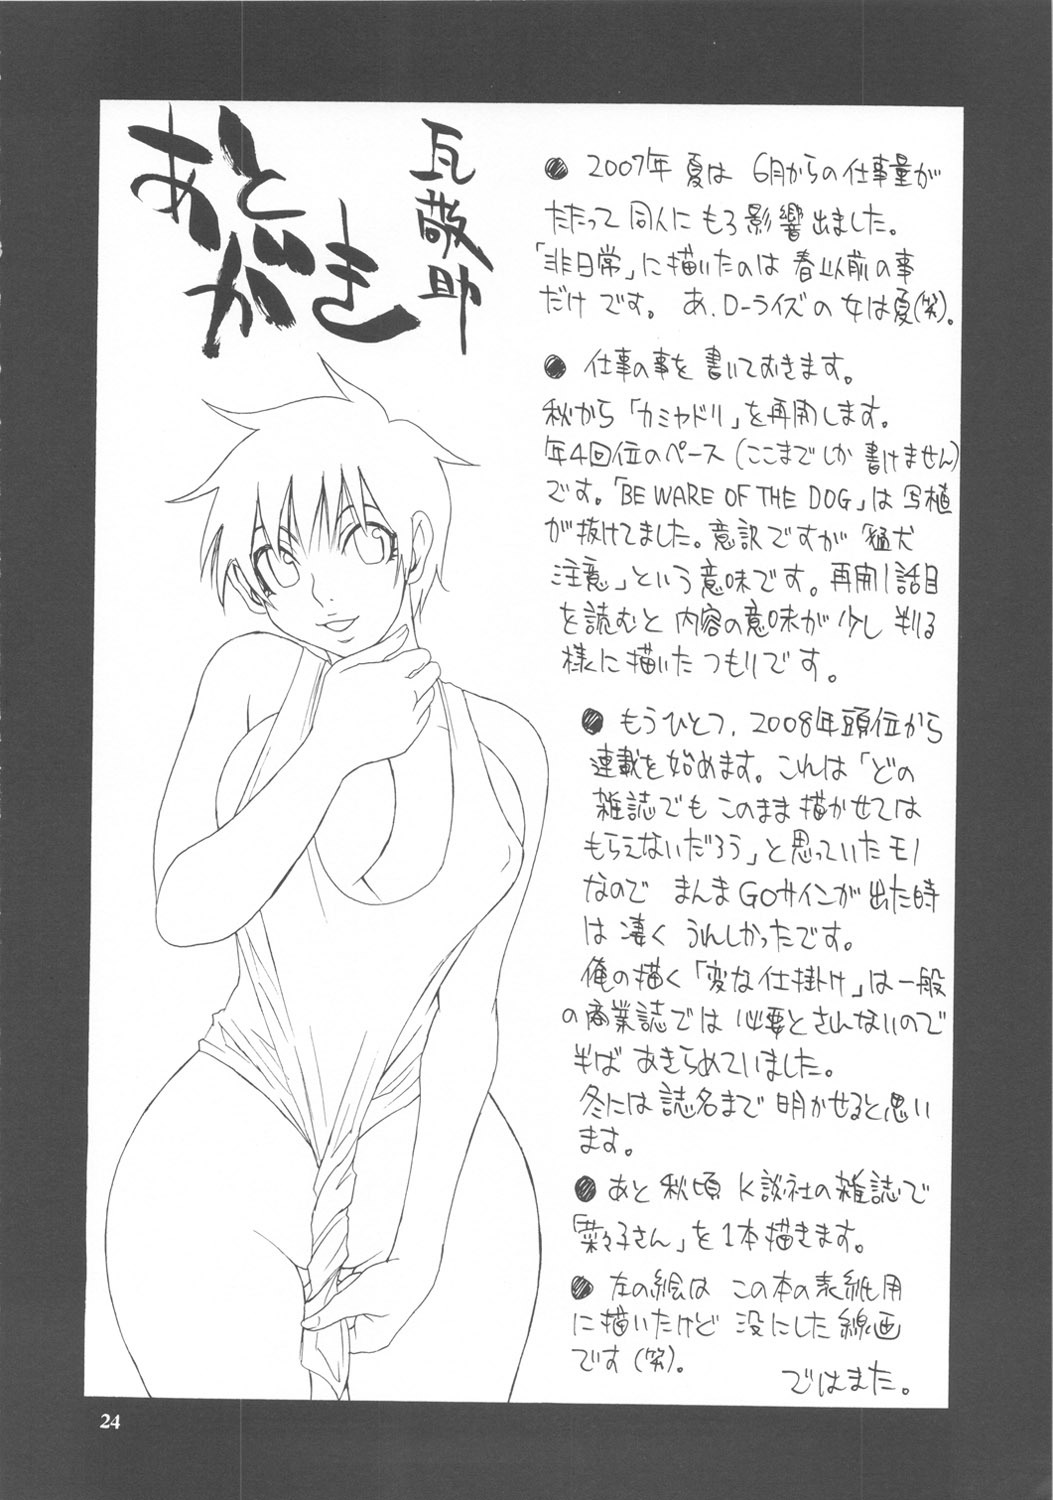 あとがき
瓦敬助
● 2007年 夏は 6月からの仕事量が
たたって 同人に もろ影響出ました。
「非日常」に描いたのは 春以前の事
だけです。 あ、D-ライズの女は夏(笑)。
● 仕事の事を 書いておきます。
秋から「カミヤドリ」を再開します。
年4回位のペース(ここまでしか 書けません)
です。「BE WARE OF THE DOG」は写植
が抜けてました。意訳ですが「猛犬
注意」という意味です。再開1話目
を読むと 内容の意味が少し 判る
様に描いたつもりです。
● もうひとつ、2008年頭位から
連載を始めます。これは「どの
雑誌でも このまま描かせては
もらえないだろう」と思っていたモノ
なので まんまGOサインが出た時
は 凄く うれしかったです。
俺の描く「変な仕掛け」は一般
の商業誌では 必要とされないので
半ば あきらめていました。
冬には 誌名まで 明かせると思い
ます。
● あと 秋頃 K談社の雑誌で
「菜々子さん」を1本描きます。
● 左の絵は この本の表紙用
に描いたけど 没にした線画
です(笑)。
ではまた。
24